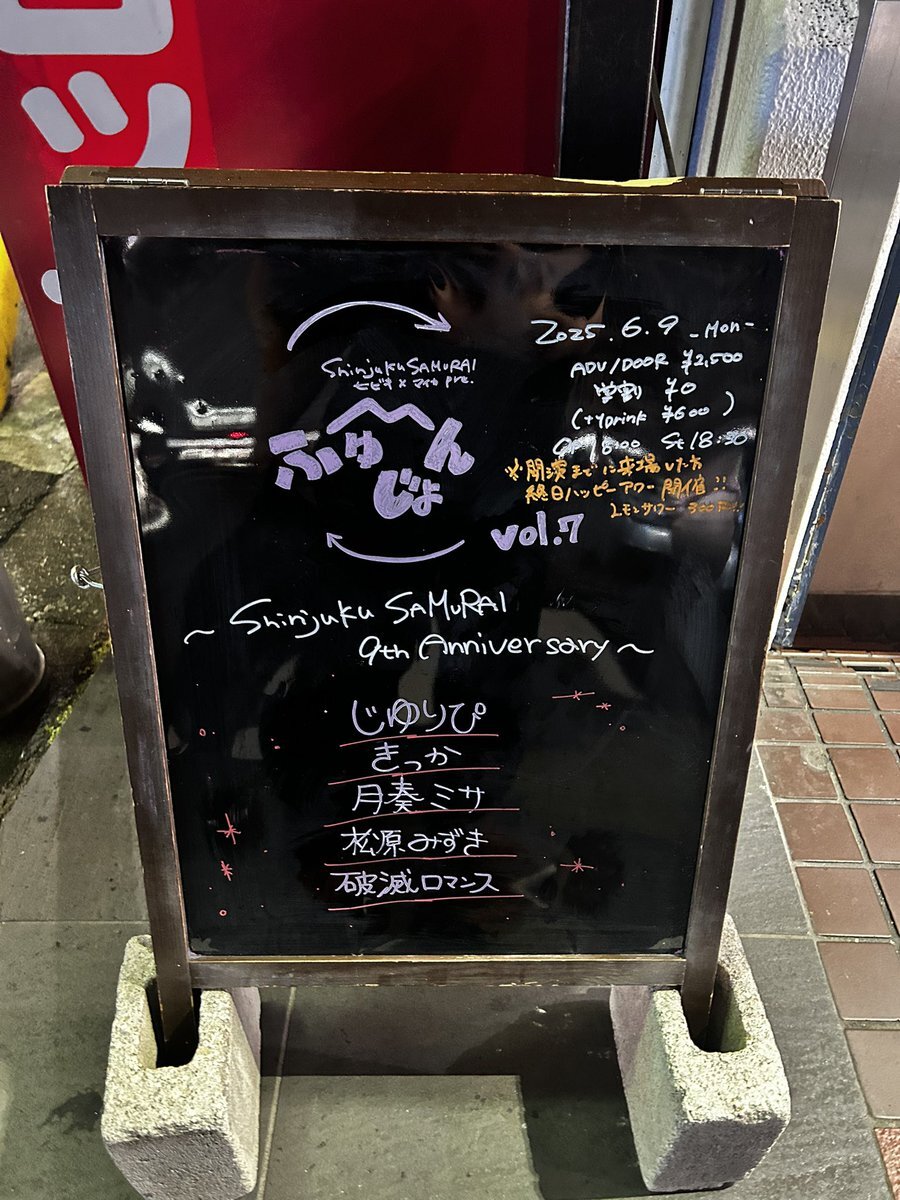 ッ
2025.6.9 -Mon-
ADV/DOOR ¥2,500
学割 ¥0
(+1Drink ¥600)
OP18:00 St18:30
※開演までに来場した方
終日ハッピーアワー開催!!
レモンサワー 300円
Shinjuku SAMURAI
ヒビキ×マイカ pre.
ふゅーへんじょ
vol.7
~Shinjuku SAMURAI
9th Anniversary~
じゆりぴ
きっか
月奏ミサ
松原みずき
破滅ロマンス